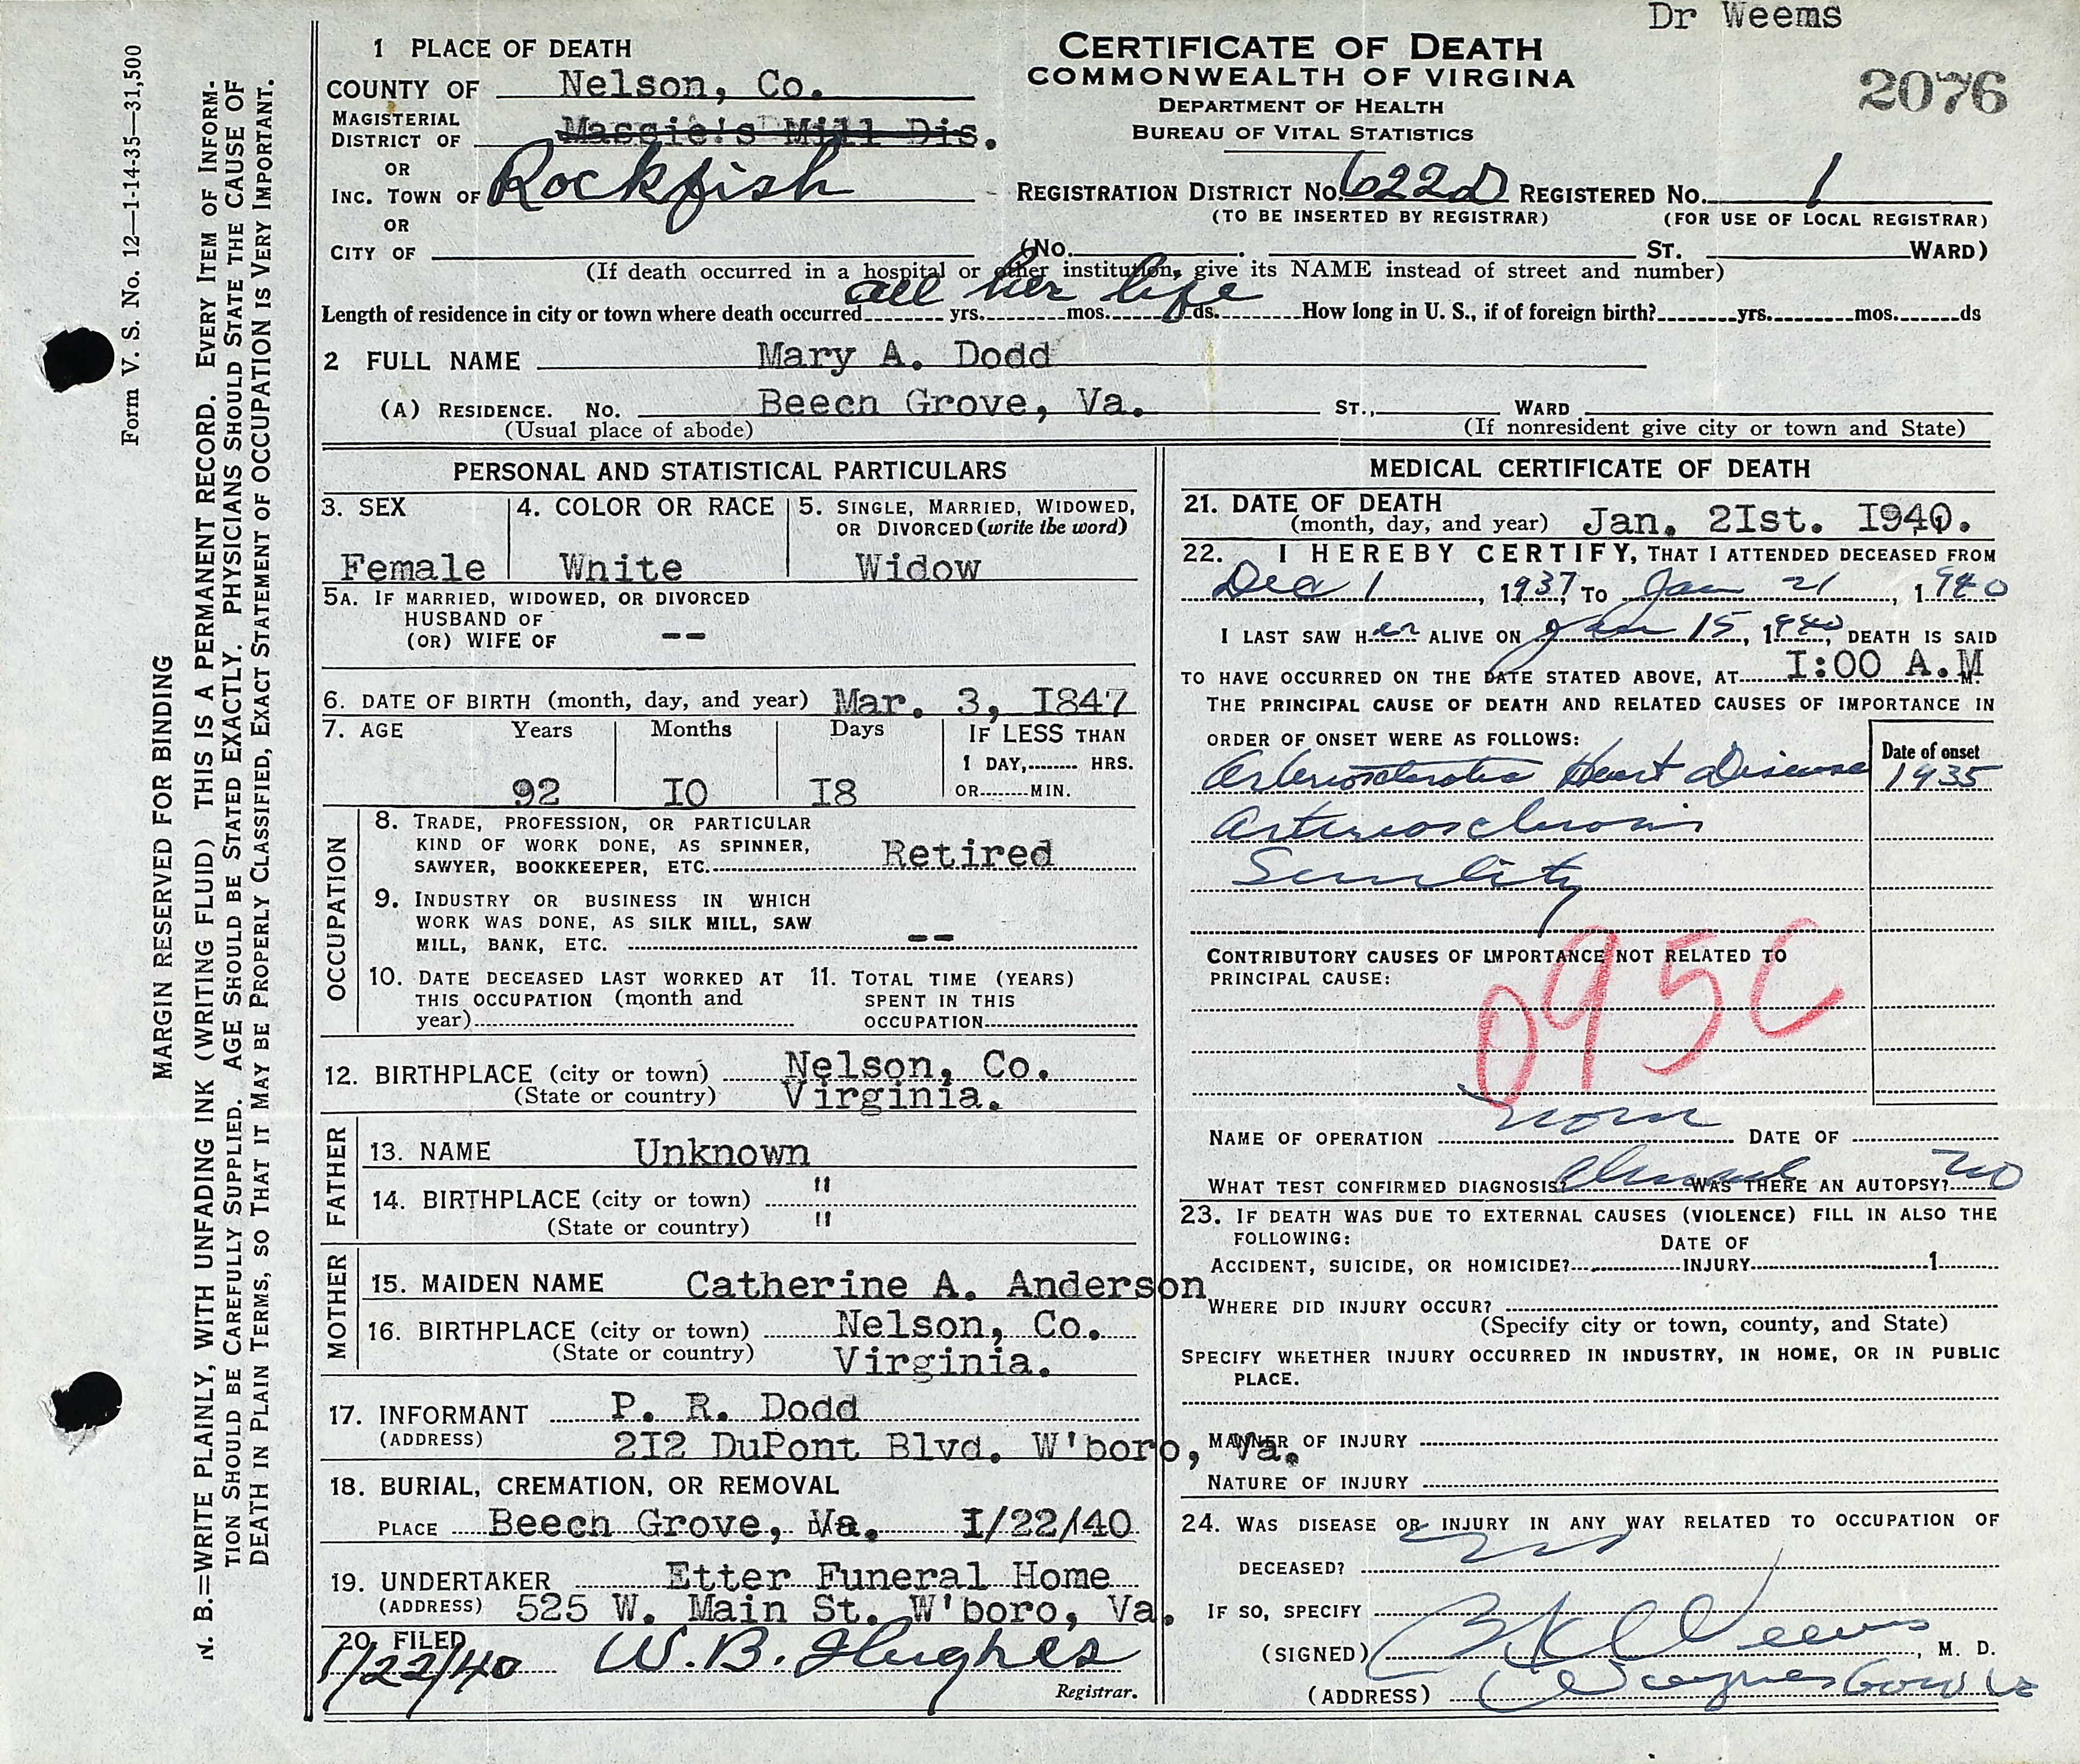 Dr Weems
1 PLACE OF DEATH
CERTIFICATE OF DEATH
COMMONWEALTH OF VIRGINA
DEPARTMENT OF HEALTH
BUREAU OF VITAL STATISTICS
2076
COUNTY OF Nelson, Co.
MAGISTERIAL
DISTRICT OF Massie's Mill Dis.
OR
INC. TOWN OF Rockfish
REGISTRATION DISTRICT NO. 622D REGISTERED NO. 1
(TO BE INSERTED BY REGISTRAR) (FOR USE OF LOCAL REGISTRAR)
OR
CITY OF (NO. ST. WARD)
(If death occurred in a hospital or other institution, give its NAME instead of street and number)
all her life
Length of residence in city or town where death occurred yrs. mos. ds. How long in U. S., if of foreign birth? yrs. mos. ds
2 FULL NAME Mary A. Dodd
(A) RESIDENCE. NO. Beech Grove, Va. ST., WARD
(Usual place of abode) (If nonresident give city or town and State)
PERSONAL AND STATISTICAL PARTICULARS
3. SEX 4. COLOR OR RACE 5. SINGLE, MARRIED, WIDOWED,
OR DIVORCED (write the word)
Female White Widow
5A. IF MARRIED, WIDOWED, OR DIVORCED
HUSBAND OF
(OR) WIFE OF --
6. DATE OF BIRTH (month, day, and year) Mar. 3, I847
7. AGE Years Months Days IF LESS THAN
1 DAY, HRS.
92 IO I8 OR MIN.
OCCUPATION
8. TRADE, PROFESSION, OR PARTICULAR
KIND OF WORK DONE, AS SPINNER,
SAWYER, BOOKKEEPER, ETC. Retired
9. INDUSTRY OR BUSINESS IN WHICH
WORK WAS DONE, AS SILK MILL, SAW
MILL, BANK, ETC. --
10. DATE DECEASED LAST WORKED AT 11. TOTAL TIME (YEARS)
THIS OCCUPATION (month and SPENT IN THIS
year) OCCUPATION
12. BIRTHPLACE (city or town) Nelson, Co.
(State or country) Virginia.
FATHER
13. NAME Unknown
14. BIRTHPLACE (city or town) "
(State or country) "
MOTHER
15. MAIDEN NAME Catherine A. Anderson
16. BIRTHPLACE (city or town) Nelson, Co.
(State or country) Virginia.
17. INFORMANT P. R. Dodd
(ADDRESS) 2I2 DuPont Blvd. W'boro, Va.
18. BURIAL, CREMATION, OR REMOVAL
PLACE Beech Grove, Va. I/22/40
19. UNDERTAKER Etter Funeral Home
(ADDRESS) 525 W. Main St. W'boro, Va.
20. FILED
1/22/40 W. B. Hughes
Registrar.
MEDICAL CERTIFICATE OF DEATH
21. DATE OF DEATH
(month, day, and year) Jan. 2Ist. I940.
22. I HEREBY CERTIFY, THAT I ATTENDED DECEASED FROM
Dec 1, 1937, TO Jan 21, 1940
I LAST SAW HER ALIVE ON Jan 15, 1940, DEATH IS SAID
TO HAVE OCCURRED ON THE DATE STATED ABOVE, AT I:00 A.M M.
THE PRINCIPAL CAUSE OF DEATH AND RELATED CAUSES OF IMPORTANCE IN
ORDER OF ONSET WERE AS FOLLOWS: Date of onset
Arteriosclerotic Heart Disease 1935
Arteriosclerosis
Senility
CONTRIBUTORY CAUSES OF IMPORTANCE NOT RELATED TO
PRINCIPAL CAUSE:
095C
NAME OF OPERATION none DATE OF
WHAT TEST CONFIRMED DIAGNOSIS? Clinical WAS THERE AN AUTOPSY? no
23. IF DEATH WAS DUE TO EXTERNAL CAUSES (VIOLENCE) FILL IN ALSO THE
FOLLOWING:
DATE OF
ACCIDENT, SUICIDE, OR HOMICIDE? INJURY 1
WHERE DID INJURY OCCUR?
(Specify city or town, county, and State)
SPECIFY WHETHER INJURY OCCURRED IN INDUSTRY, IN HOME, OR IN PUBLIC
PLACE.
MANNER OF INJURY
NATURE OF INJURY
24. WAS DISEASE OR INJURY IN ANY WAY RELATED TO OCCUPATION OF
DECEASED? no
IF SO, SPECIFY
(SIGNED) Weems, M. D.
(ADDRESS) Waynesboro Va
MARGIN RESERVED FOR BINDING
N. B.=WRITE PLAINLY, WITH UNFADING INK (WRITING FLUID) THIS IS A PERMANENT RECORD. EVERY ITEM OF INFORM-
TION SHOULD BE CAREFULLY SUPPLIED. AGE SHOULD BE STATED EXACTLY. PHYSICIANS SHOULD STATE THE CAUSE OF
DEATH IN PLAIN TERMS, SO THAT IT MAY BE PROPERLY CLASSIFIED, EXACT STATEMENT OF OCCUPATION IS VERY IMPORTANT.
Form V. S. No. 12—1-14-35—31,500